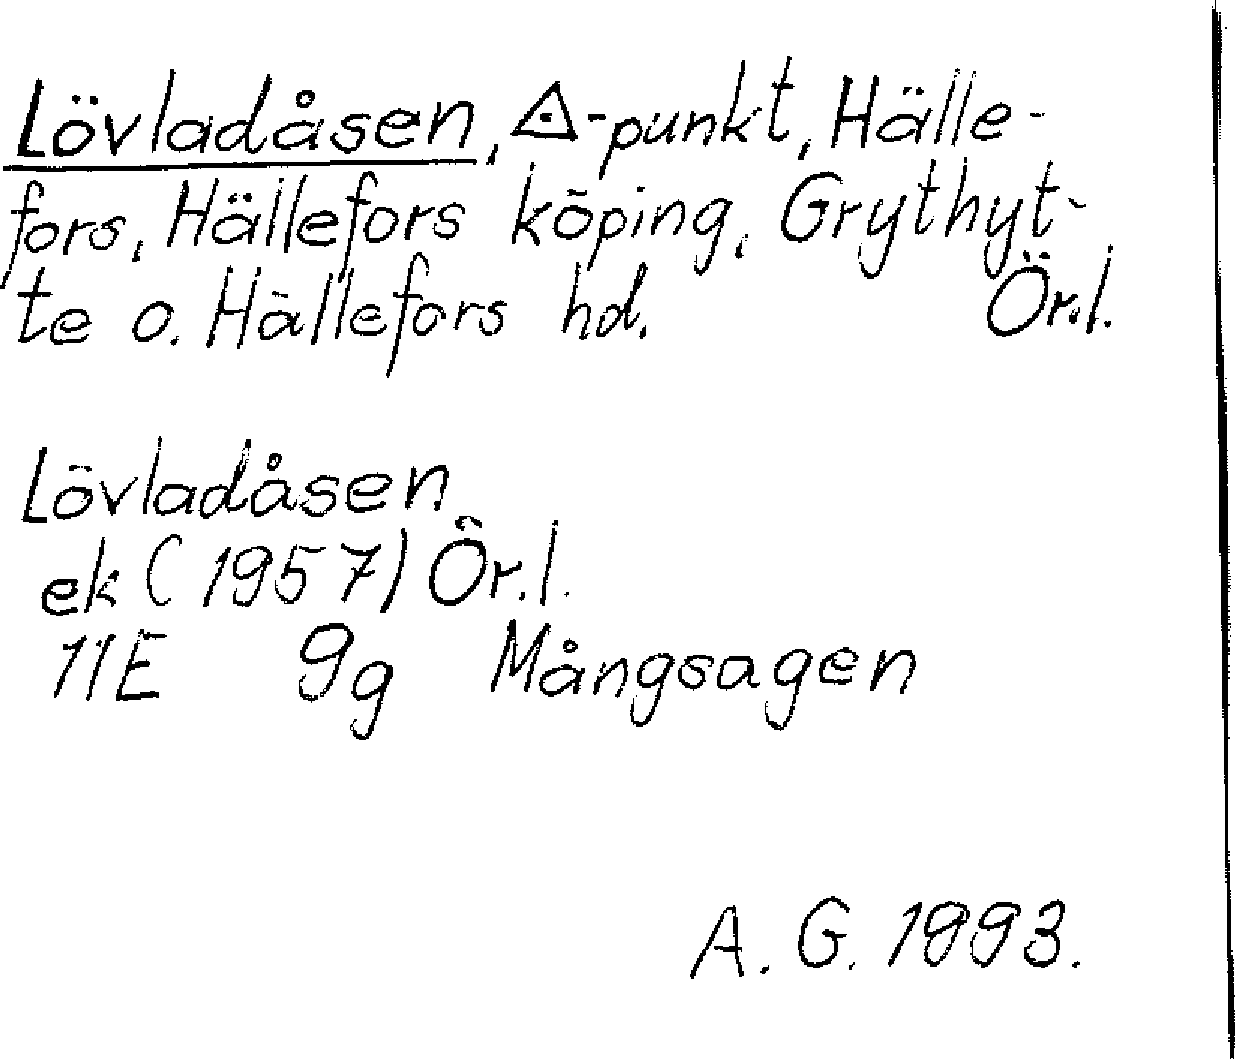 Lövladåsen, ◬-punkt, Hälle-
fors, Hällefors köping, Grythyt-
te o. Hällefors hd. Ör.l.
Lövladåsen
ek (1957) Ör.l.
11E 9g Mångsagen
A. G. 1993.